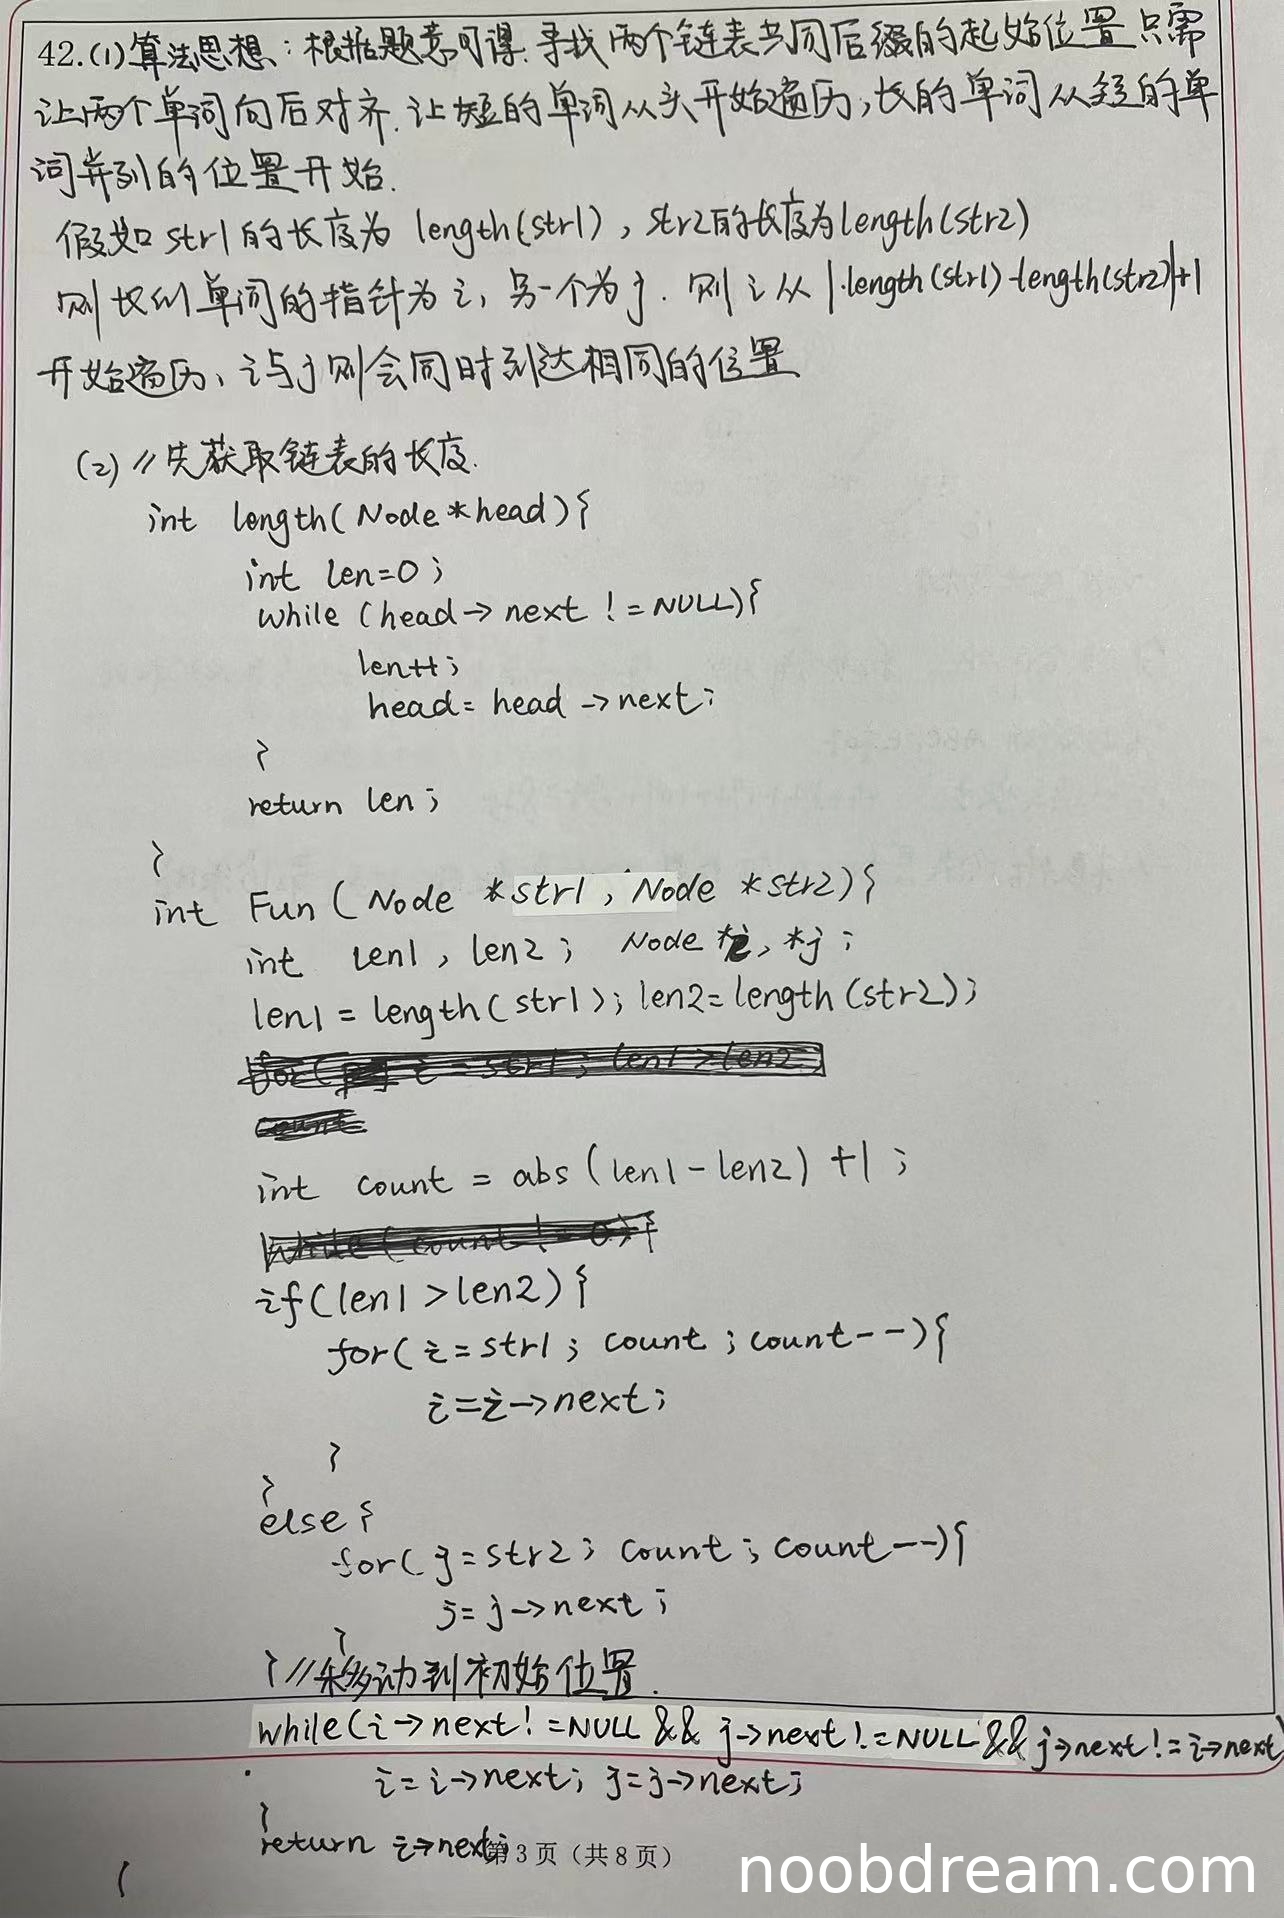 42.(1)算法思想：根据题意可得.寻找两个链表共同后缀的起始位置只需
让两个单词向后对齐.让短的单词从头开始遍历,长的单词从短的单
词并列的位置开始.
假如str1的长度为 length(str1),str2的长度为length(str2)
则长的单词的指针为i,另一个为j.则i从|length(str1)-length(str2)|+1
开始遍历、i与j则会同时到达相同的位置
(2) //先获取链表的长度.
int length(Node *head){
int len=0;
while (head->next != NULL){
len++;
head = head ->next;
}
return len;
}
int Fun (Node *str1, Node *str2){
int len1, len2; Node *i, *j;
len1 = length(str1); len2=length(str2);
for( i = str1; len1>len2;
count
int count = abs (len1-len2) +1;
while(count != 0){
if(len1 >len2){
for(i=str1; count; count--){
i=i->next;
}
}
else{
for(j=str2; count; count--){
j=j->next;
}
} //移动到初始位置.
while(i->next!=NULL && j->next!=NULL && j->next!=i->next)
i=i->next; j=j->next;
}
return i->next;
第3页（共8页）
noobdream.com